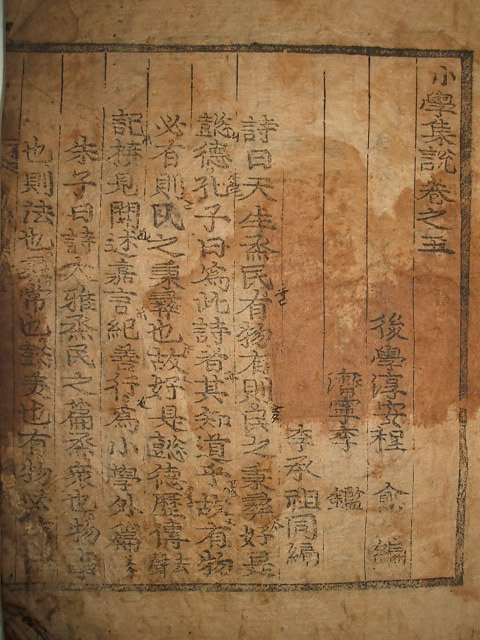 小學集說卷之五
後學淳安程 愈 編
濟寧李 鑑
李承祖同編
詩曰天生烝民有物有則民之秉彝好是
懿德孔子曰爲此詩者其知道乎故有物
必有則民之秉彝也故好是懿德歷傳去聲
記接見聞述嘉言紀善行爲小學外篇
朱子曰詩大雅烝民之篇烝衆也物事
也則法也彝常也懿美也有物必有